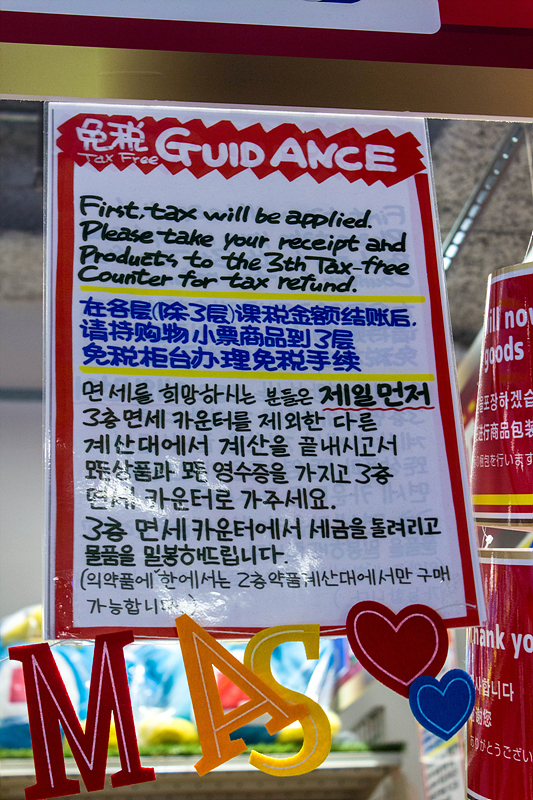 免税
Tax Free
GUIDANCE
First, tax will be applied.
Please take your receipt and
Products to the 3th Tax-free
Counter for tax refund.
在各层(除3层)课税金额结账后,
请持购物小票商品到3层
免税柜台办理免税手续
면세를 희망하시는 분들은 제일먼저
3층면세 카운터를 제외한 다른
계산대에서 계산을 끝내시고서
모든상품과 모든 영수증을 가지고 3층
면세 카운터로 가주세요.
3층 면세 카운터에서 세금을 돌려리고
물품을 밀봉해드립니다.
(의약품에 한에서는 2층약품계산대에서만 구매
가능합니다.)
MAS
ill now
goods
포장하겠습
进行商品包装
梱包を行います
hank yo
사합니다
谢您
ありがとうござい